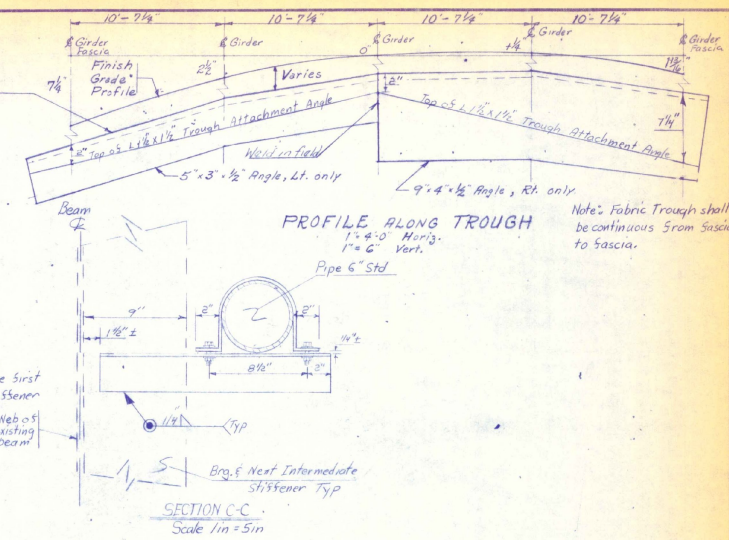 10'-7¼" 10'-7¼" 10'-7¼" 10'-7¼"
℄ Girder Fascia
℄ Girder
℄ Girder
℄ Girder
℄ Girder Fascia
7¼"
2½"
0"
+¼"
Finish
Grade
Profile
Varies
2"
7¼"
2" Top of L 1½"x1½" Trough Attachment Angle
Top of L 1½"x1½" Trough Attachment Angle
Weld in field
5"x3"x½" Angle, Lt. only
9"x4"x½" Angle, Rt. only
PROFILE ALONG TROUGH
1"=4'-0" Horiz.
1"=6" Vert.
Note: Fabric Trough shall
be continuous from fascia
to fascia.
Beam
℄
Pipe 6" Std
9"
2" 2"
1½"±
¼"±
8½" 2"
first
1/4
Typ
Web of
beam
Brg. & Next Intermediate
Stiffener Typ
SECTION C-C
Scale 1in = 5in